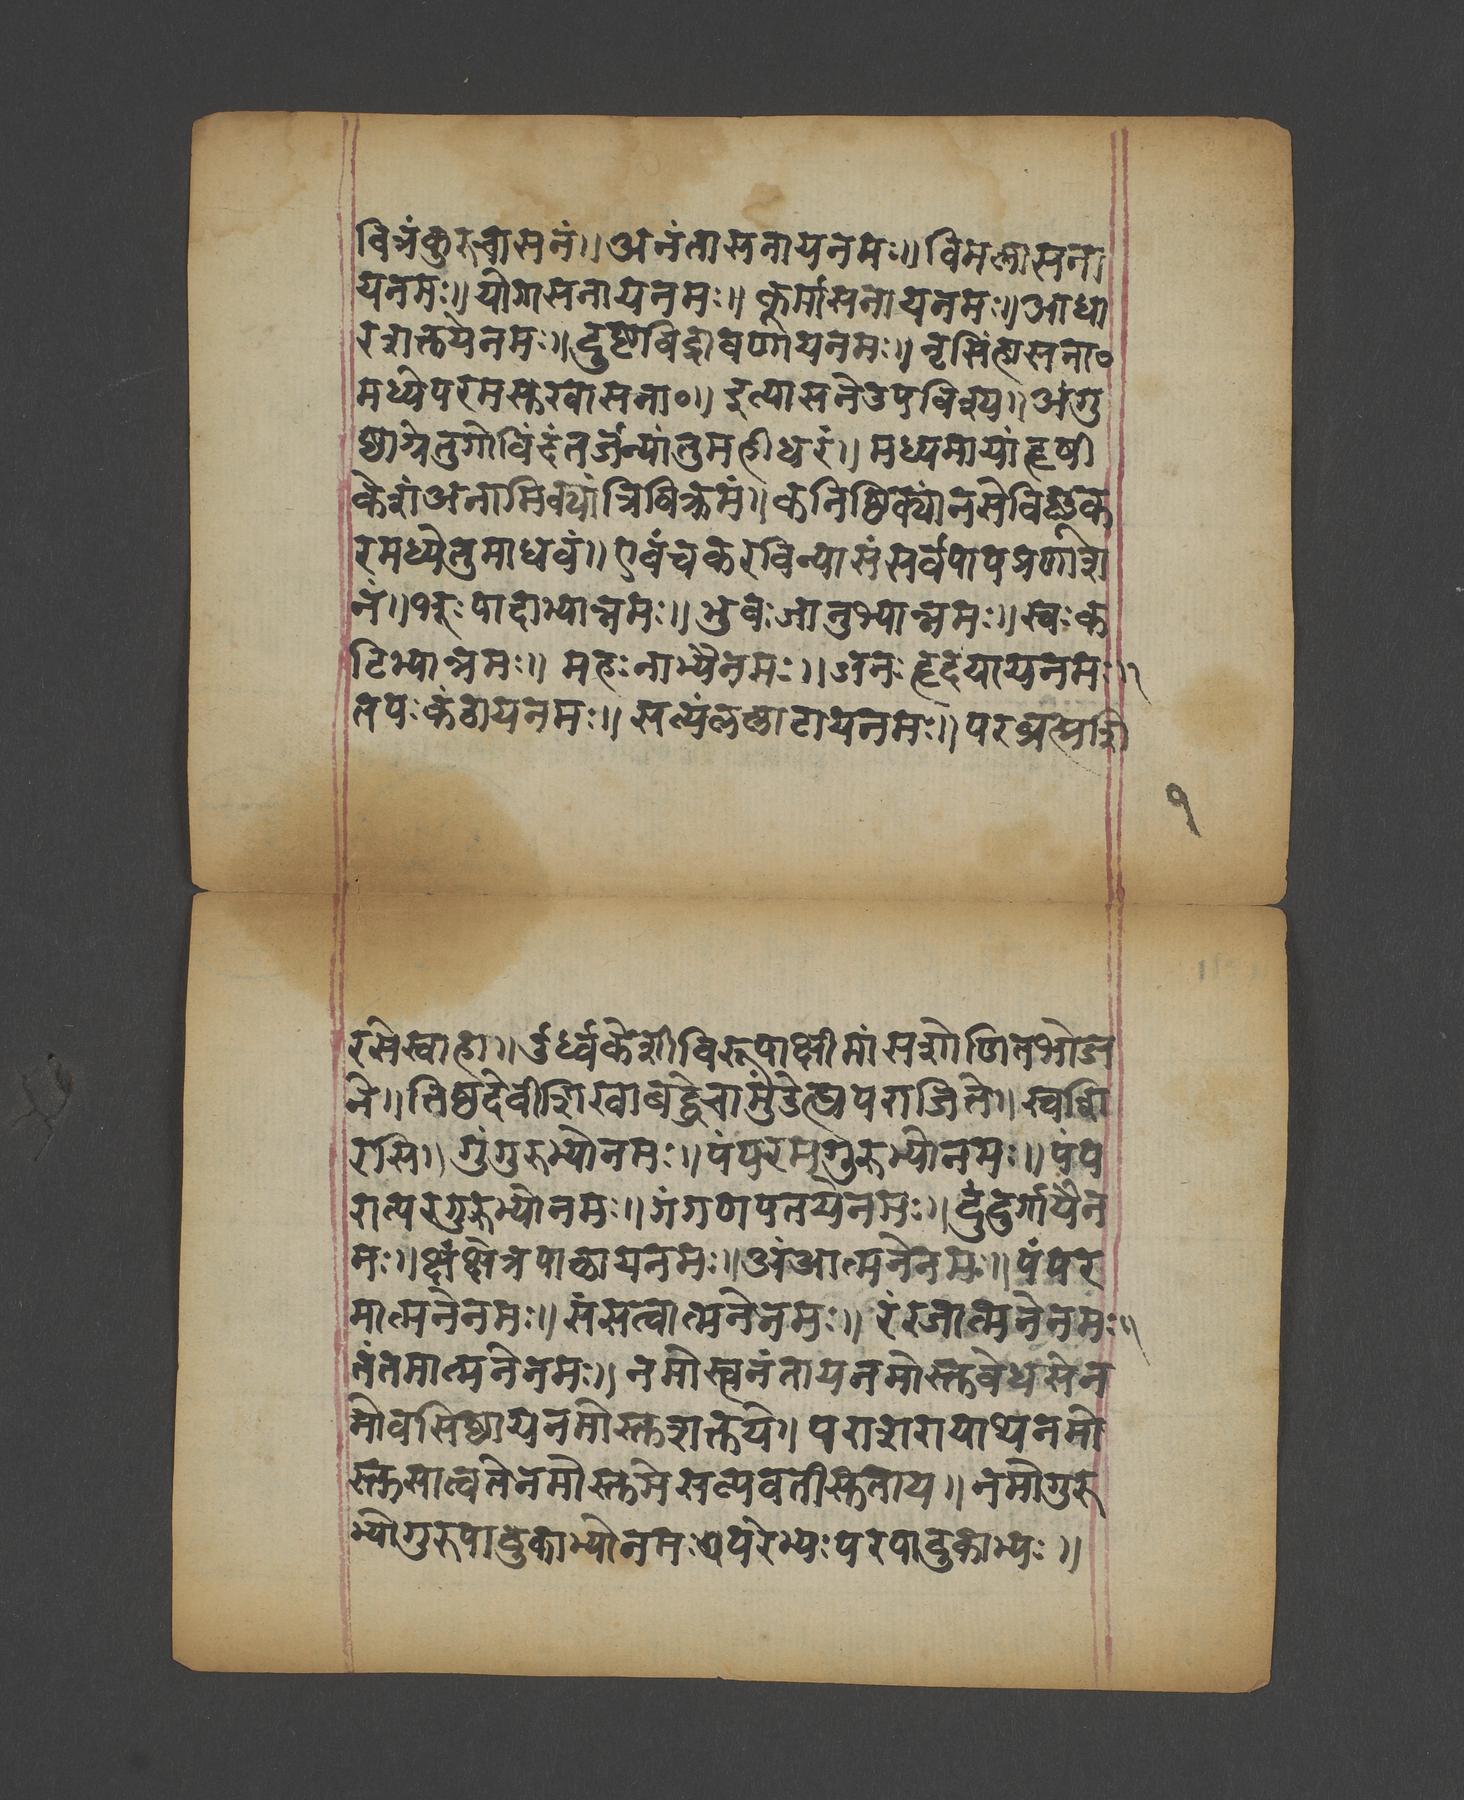 वित्रंकुरुचासनं॥ अनंतासनायनमः॥ विमलासना
यनमः॥ योगासनायनमः॥ कूर्मासनायनमः॥ आधा
रशक्तयेनमः॥ दुष्टविद्रावणायनमः॥ नृसिंहासना०
मध्येपरमसुखासना०॥ इत्यासनेउपविश्य॥ अंगु
ष्ठाग्रेतुगोविंदंतर्जन्यांतुमहीधरं॥ मध्यमायांहृषी
केशंअनामिक्यांत्रिविक्रमं॥ कनिष्ठिक्यांनसेविष्णुंक
रमध्येतुमाधवं॥ एवंचकरविन्यासंसर्वपापप्रणाश
नं॥ भूः पादाभ्यान्नमः॥ भुवः जानुभ्यान्नमः॥ स्वः क
टिभ्यान्नमः॥ महः नाभ्यैनमः॥ जनः हृदयायनमः॥
तपः कंठायनमः॥ सत्यंललाटायनमः॥ परब्रह्मशि
१
रसेस्वाहा॥ उर्ध्वकेशीविरूपाक्षीमांसशोणितभोज
ने॥ तिष्ठदेवीशिखाबद्धेचामुंडेह्यपराजिते॥ स्वशि
रसि॥ गुंगुरुभ्योनमः॥ पंपरमगुरुभ्योनमः॥ पंप
रात्परगुरुभ्योनमः॥ गंगणपतयेनमः॥ दुंदुर्गायैन
मः॥ क्षंक्षेत्रपालायनमः॥ अंआत्मनेनमः॥ पंपर
मात्मनेनमः॥ संसत्वात्मनेनमः॥ रंरजात्मनेनमः॥
तंतमात्मनेनमः॥ नमोस्त्वनंतायनमोस्तुवेधसेन
मोवसिष्ठायनमोस्तुशक्तये॥ पराशरायाथनमो
स्तुसात्वतेनमोस्तुमेसत्यवतीसुताय॥ नमोगुरु
भ्योगुरुपादुकाभ्योनमः परेभ्यः परपादुकाभ्यः॥